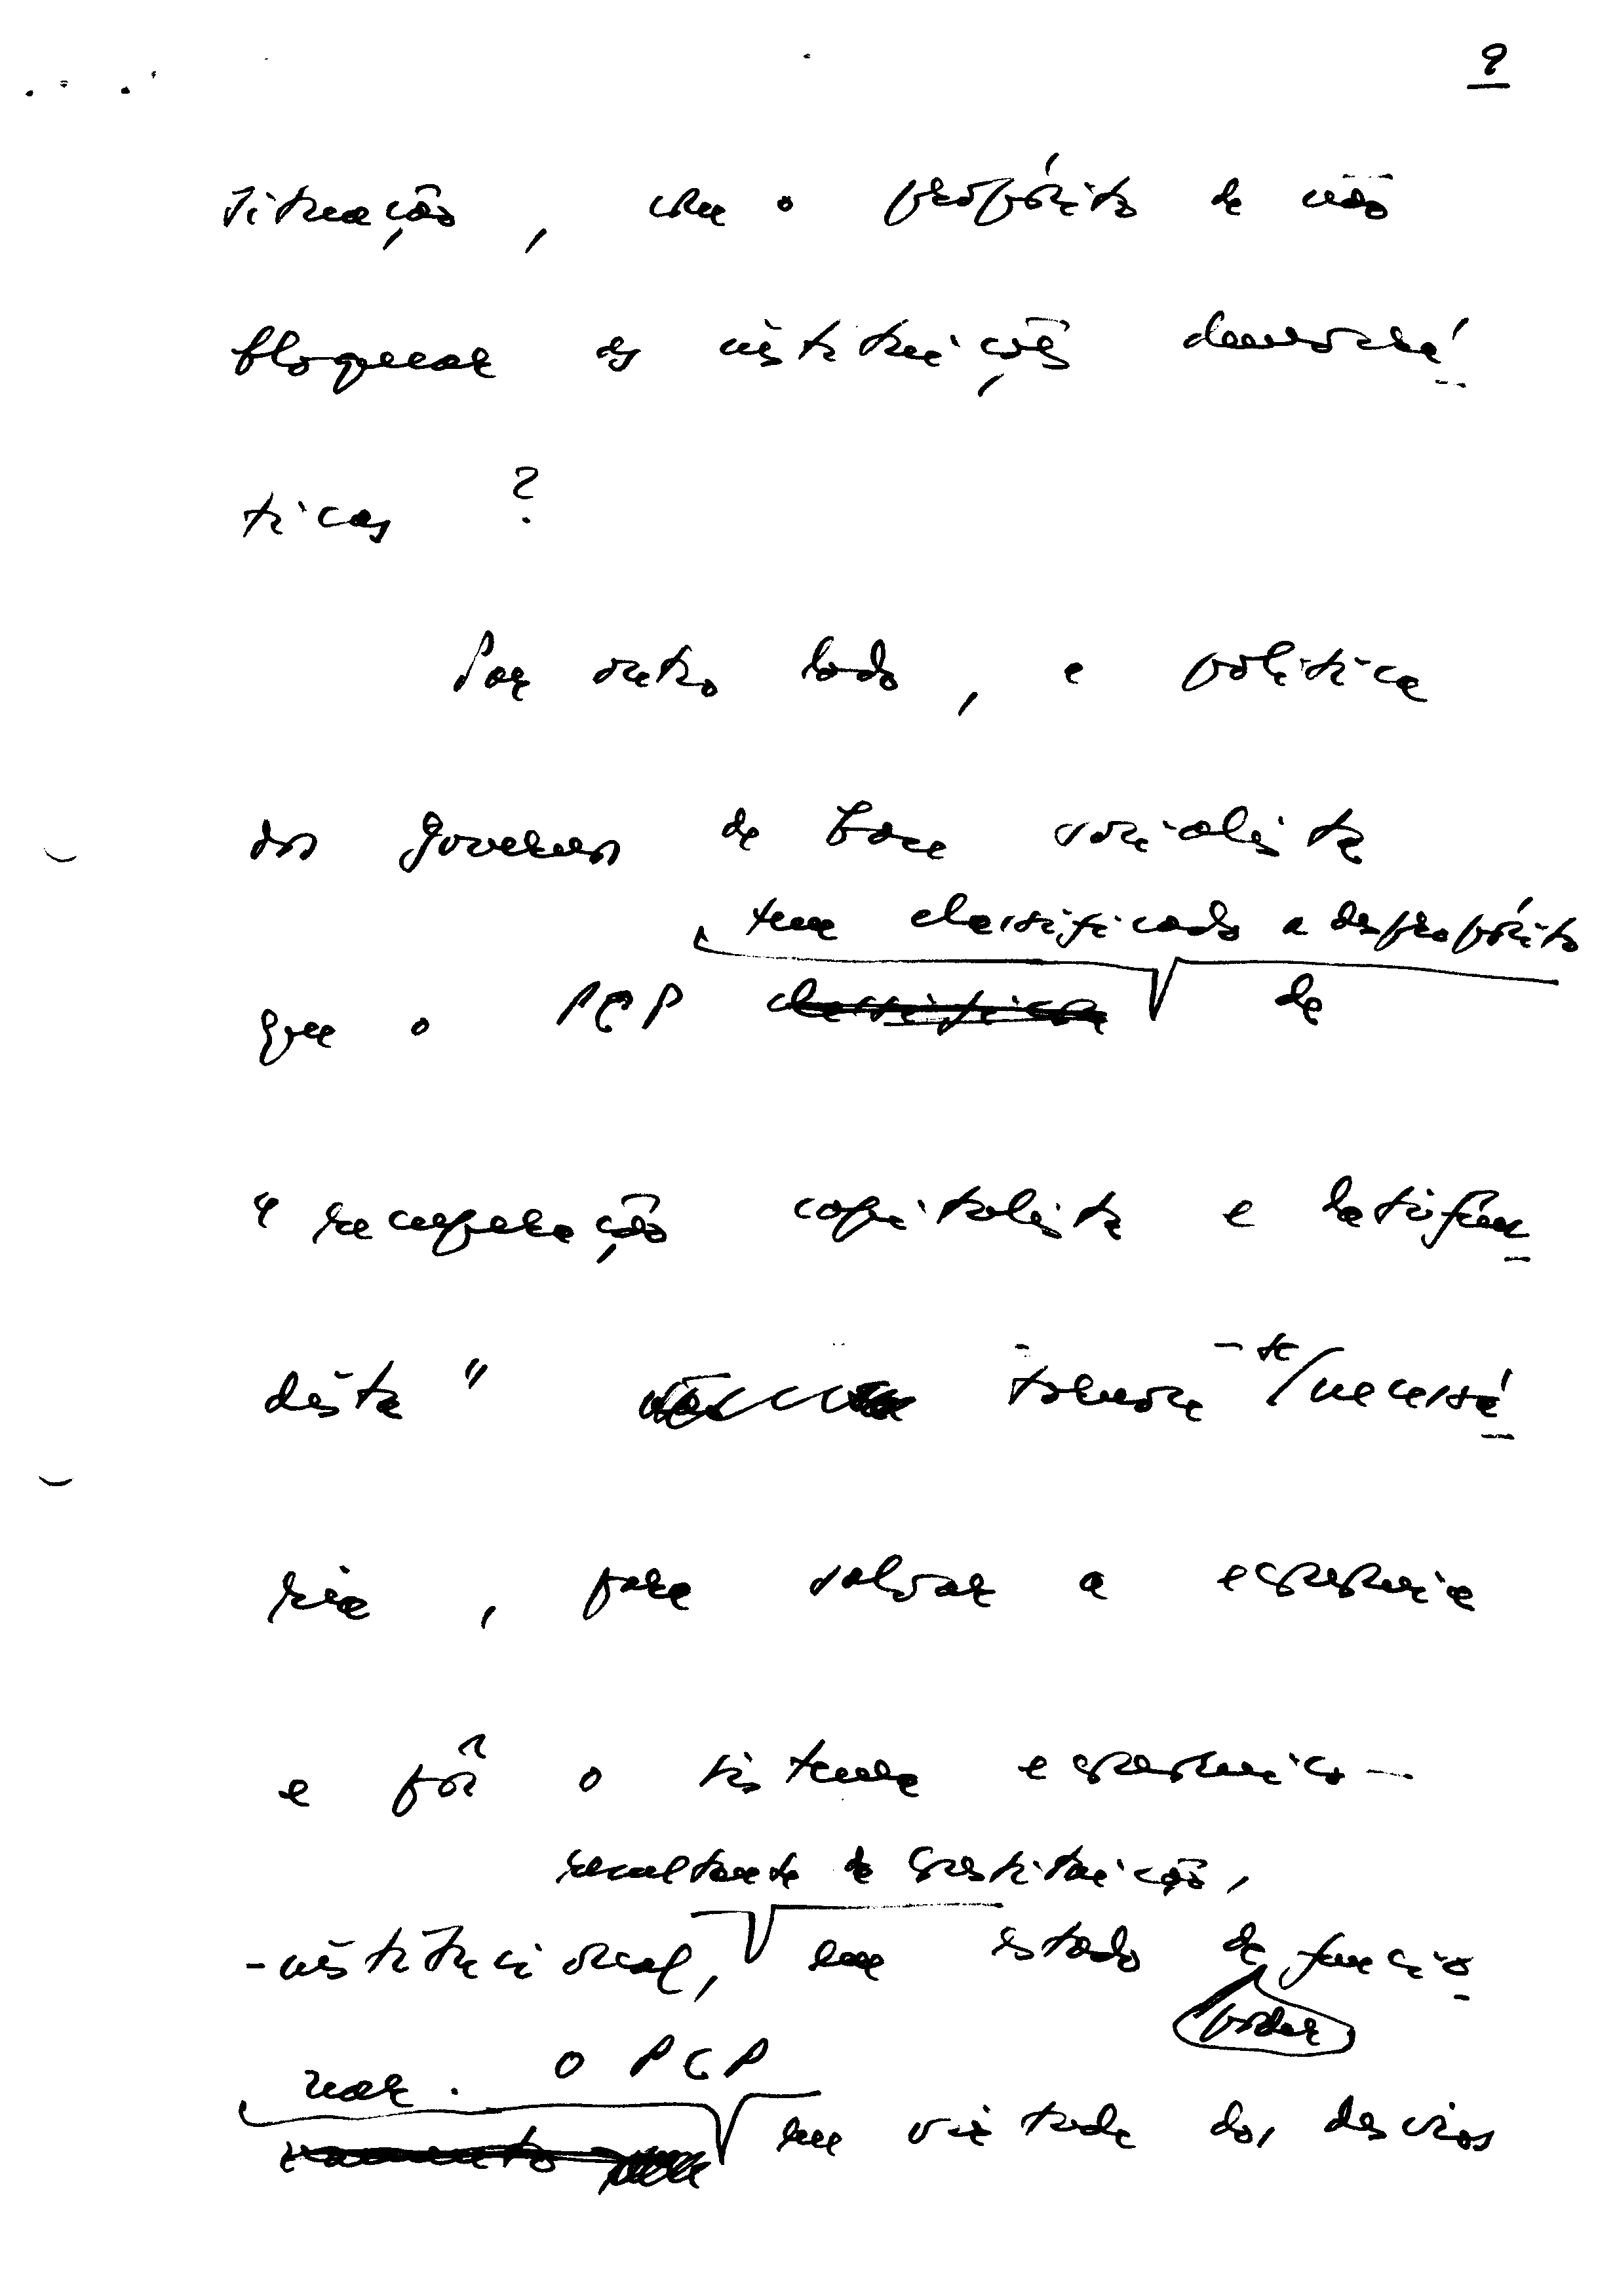 9
situação, com o propósito de não
bloquear as instituições democrá
ticas?
Por outro lado, a política
dos governos de base socialista
tem classificado a despropósito
que o PCP classifica de
"recuperação capitalista e latifun
dista" tornou-se necessá
ria, para salvar a economia
e pôr o sistema económico-
resultante da Constituição,
-institucional, em estado de funcio
poder
nar. O PCP
em virtude dos desvios